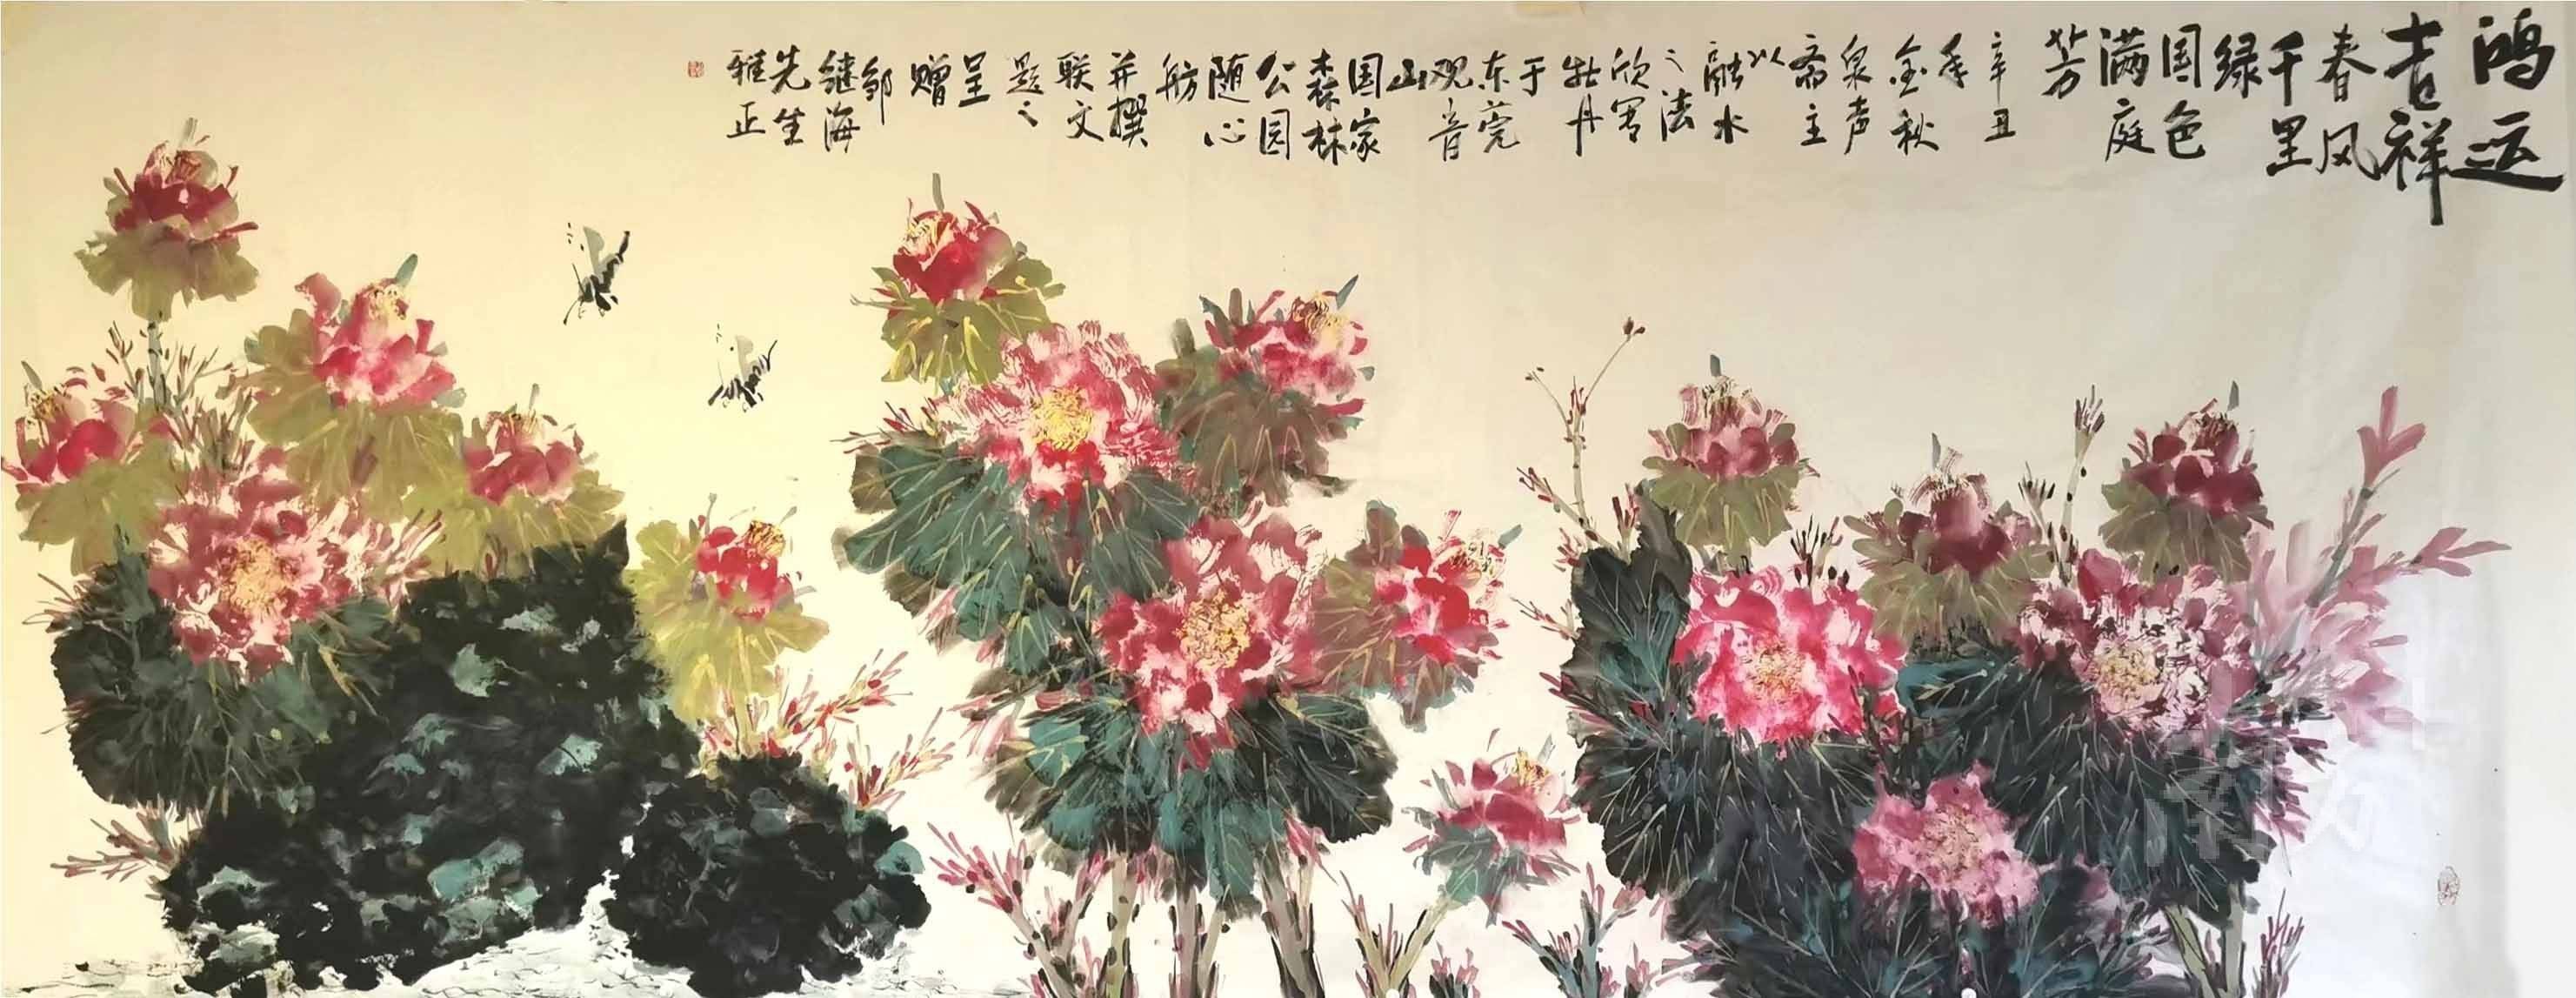 鸿运
吉祥
春风
千里
绿
国色
满庭
芳
辛丑
年
金秋
泉声
斋主
以
融水
之法
欣写
牡丹
于
东莞
观音
山
国家
森林
公园
随心
舫
并撰
联文
题之
呈
赠
邹
继海
先生
雅正
南方